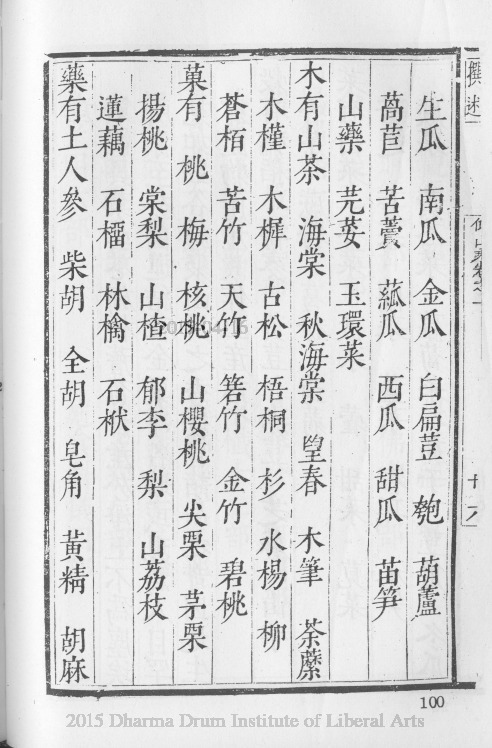 撰述
十八
生瓜 南瓜 金瓜 白扁荳 匏 葫蘆
萵苣 苦藚 菰瓜 西瓜 甜瓜 苗笋
山藥 芫荽 玉環菜
木有山茶 海棠 秋海棠 望春 木筆 荼蘼
木槿 木樨 古松 梧桐 杉 水楊 柳
蒼栢 苦竹 天竹 箬竹 金竹 碧桃
菓有 桃 梅 核桃 山櫻桃 尖栗 茅栗
揚桃 棠梨 山楂 郁李 梨 山荔枝
蓮藕 石榴 林檎 石栿
藥有土人參 柴胡 全胡 皂角 黃精 胡麻
100
2015 Dharma Drum Institute of Liberal Arts